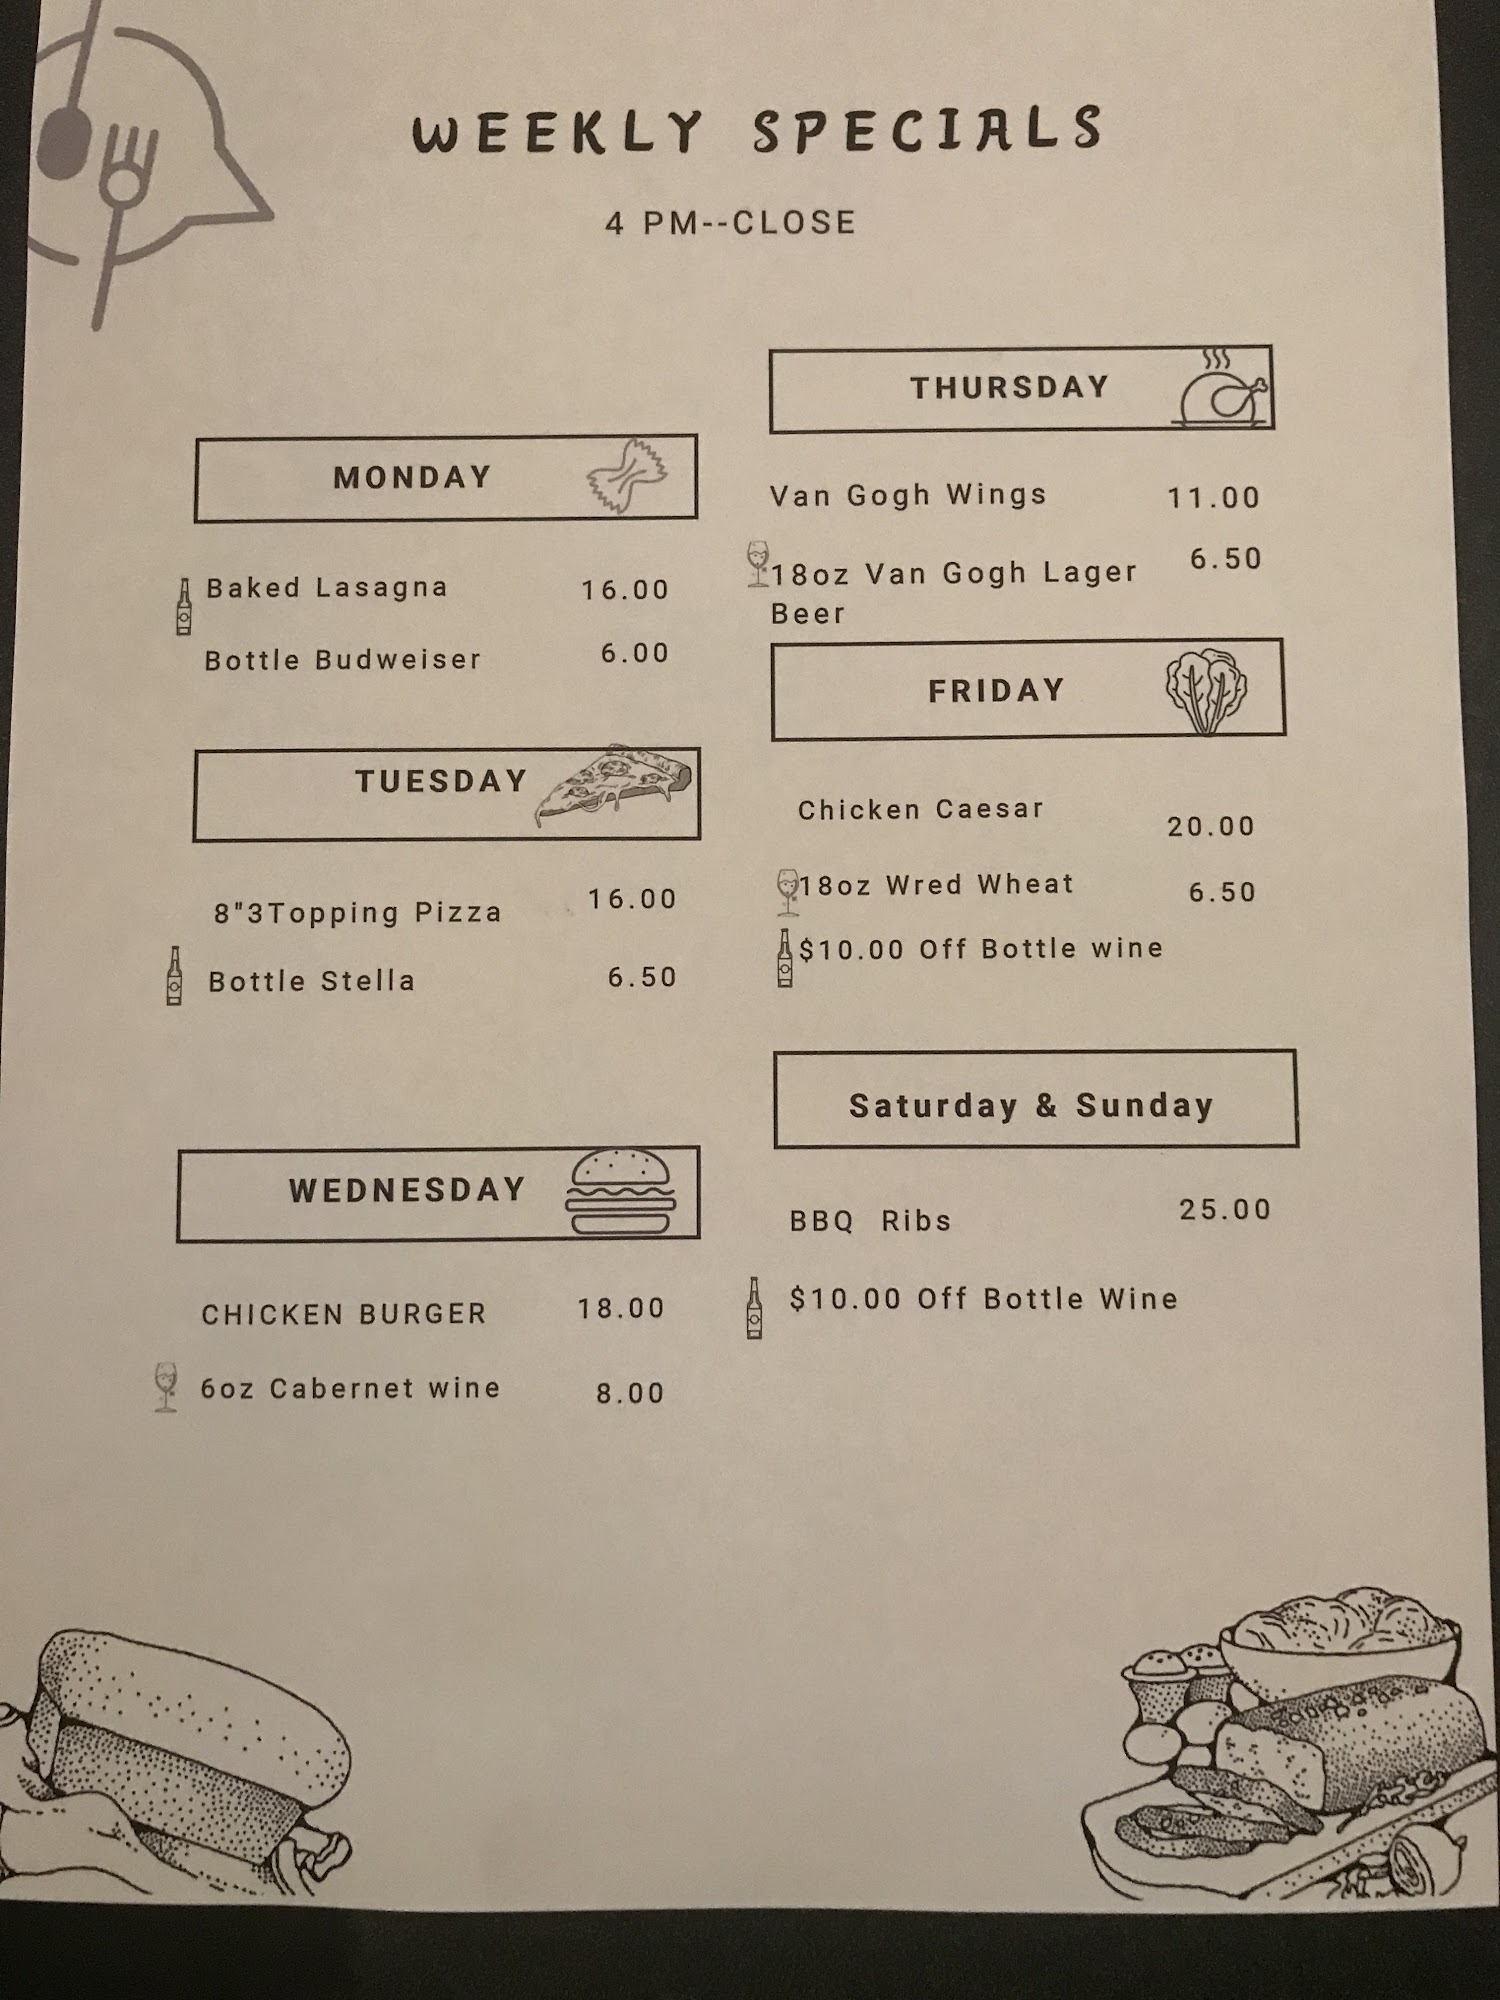 WEEKLY SPECIALS
4 PM--CLOSE
MONDAY
Baked Lasagna 16.00
Bottle Budweiser 6.00
TUESDAY
8"3Topping Pizza 16.00
Bottle Stella 6.50
WEDNESDAY
CHICKEN BURGER 18.00
6oz Cabernet wine 8.00
THURSDAY
Van Gogh Wings 11.00
18oz Van Gogh Lager 6.50
Beer
FRIDAY
Chicken Caesar 20.00
18oz Wred Wheat 6.50
$10.00 Off Bottle wine
Saturday & Sunday
BBQ Ribs 25.00
$10.00 Off Bottle Wine